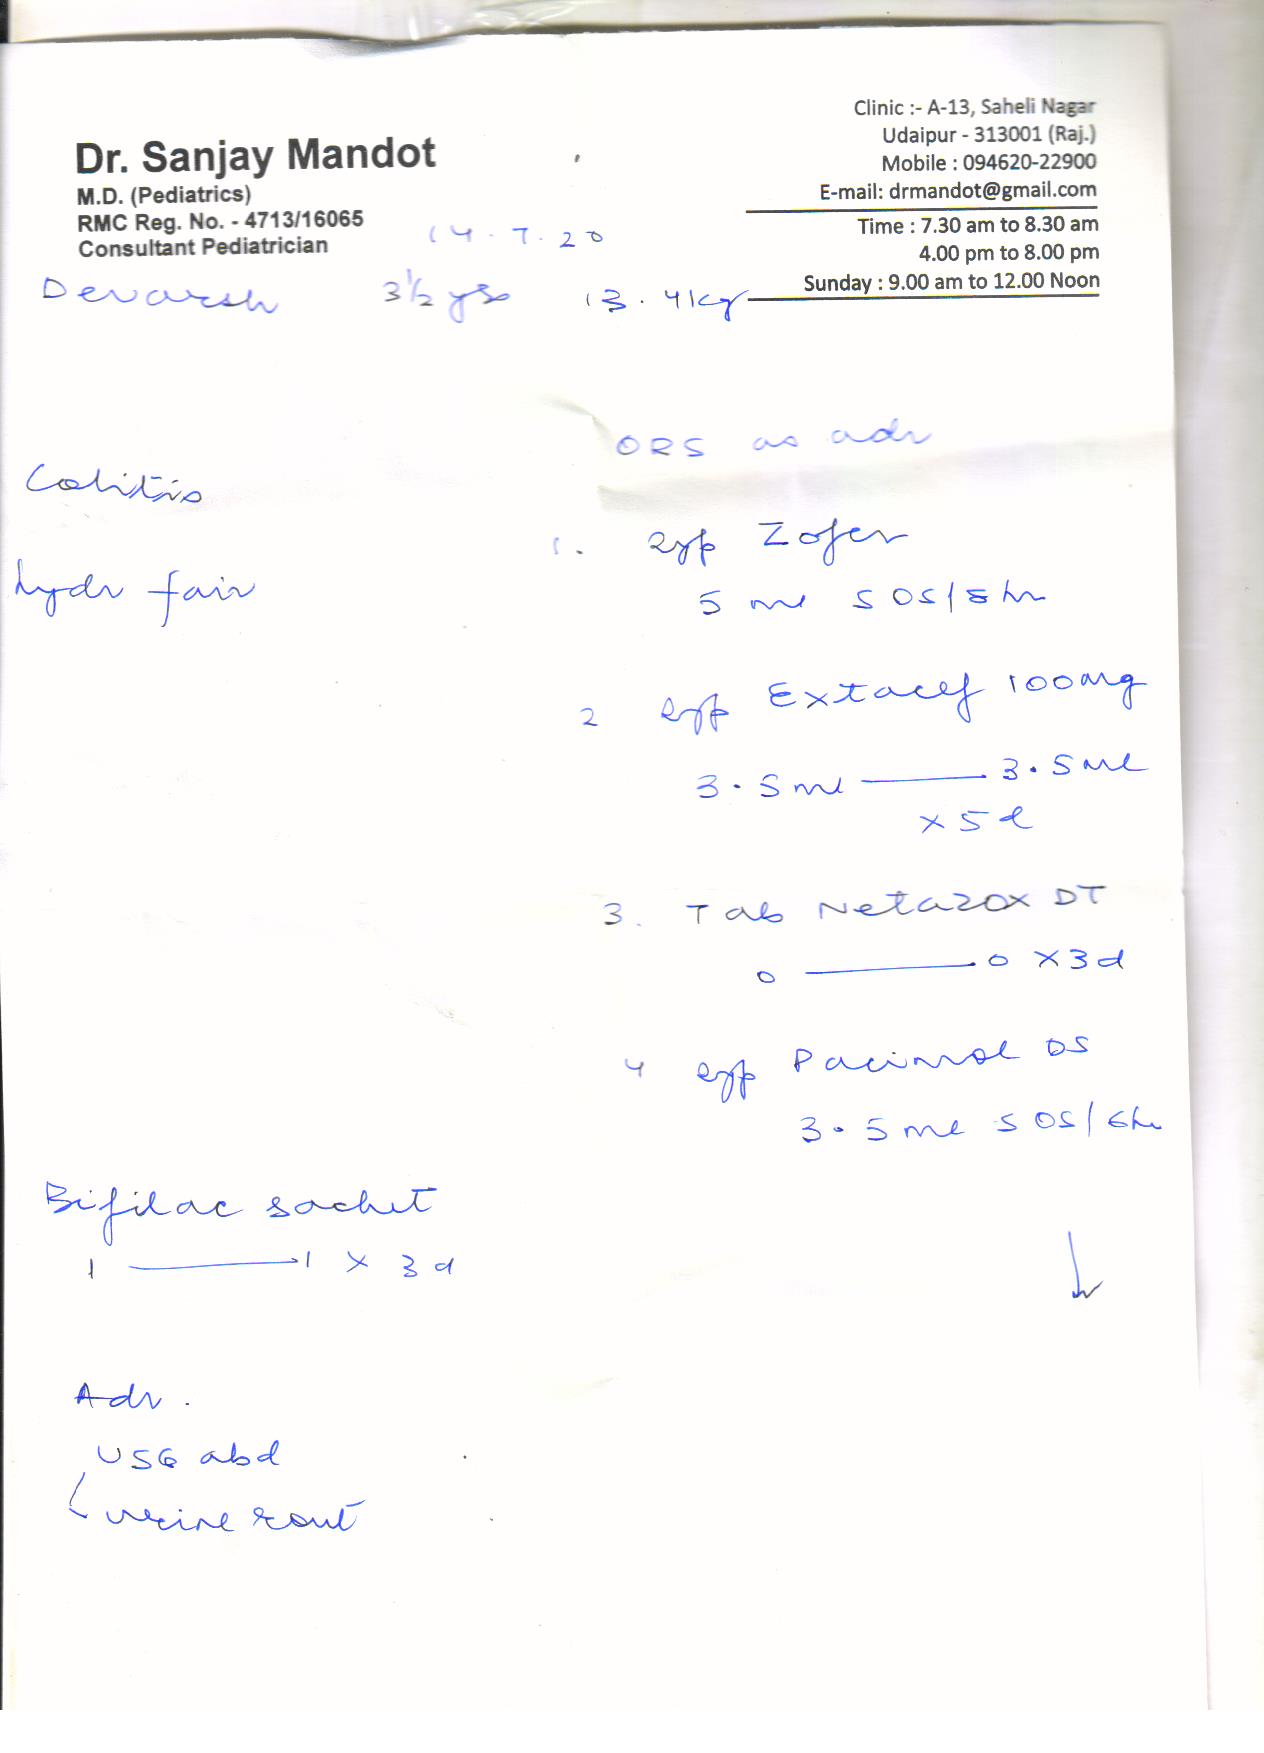 Dr. Sanjay Mandot
M.D. (Pediatrics)
RMC Reg. No. - 4713/16065
Consultant Pediatrician
Clinic :- A-13, Saheli Nagar
Udaipur - 313001 (Raj.)
Mobile : 094620-22900
E-mail: drmandot@gmail.com
Time : 7.30 am to 8.30 am
4.00 pm to 8.00 pm
Sunday : 9.00 am to 12.00 Noon
14.7.20
Devarsh 3½ yrs 13.4 kg
Colitis
hydr fair
ORS as adv
1. Syp Zofer
5 ml SOS/8hr
2 Syp Extacef 100mg
3.5 ml — 3.5 ml
x 5 d
3. Tab Netazox DT
0 — 0 x 3d
4 Syp Pacimol DS
3.5 ml SOS/6hr
Bifilac sachet
1 — 1 x 3 d
Adv.
USG abd
urine rout